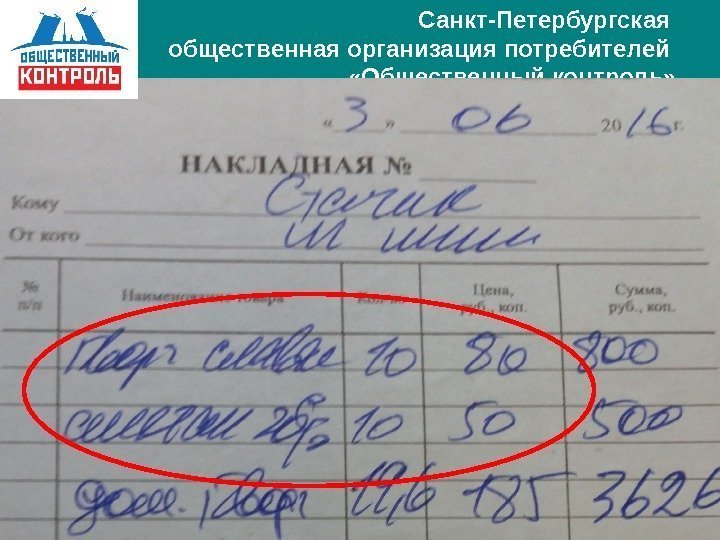 ОБЩЕСТВЕННЫЙ
КОНТРОЛЬ
Санкт-Петербургская
общественная организация потребителей
«Общественный контроль»
«3» 06 2016 г.
НАКЛАДНАЯ №
Кому
От кого
№ п/п Наименование товара Кол-во Цена, руб., коп. Сумма, руб., коп.
Творг 10 80 800
сметан 20% 10 50 500
дом. Творг 19,6 185 3626